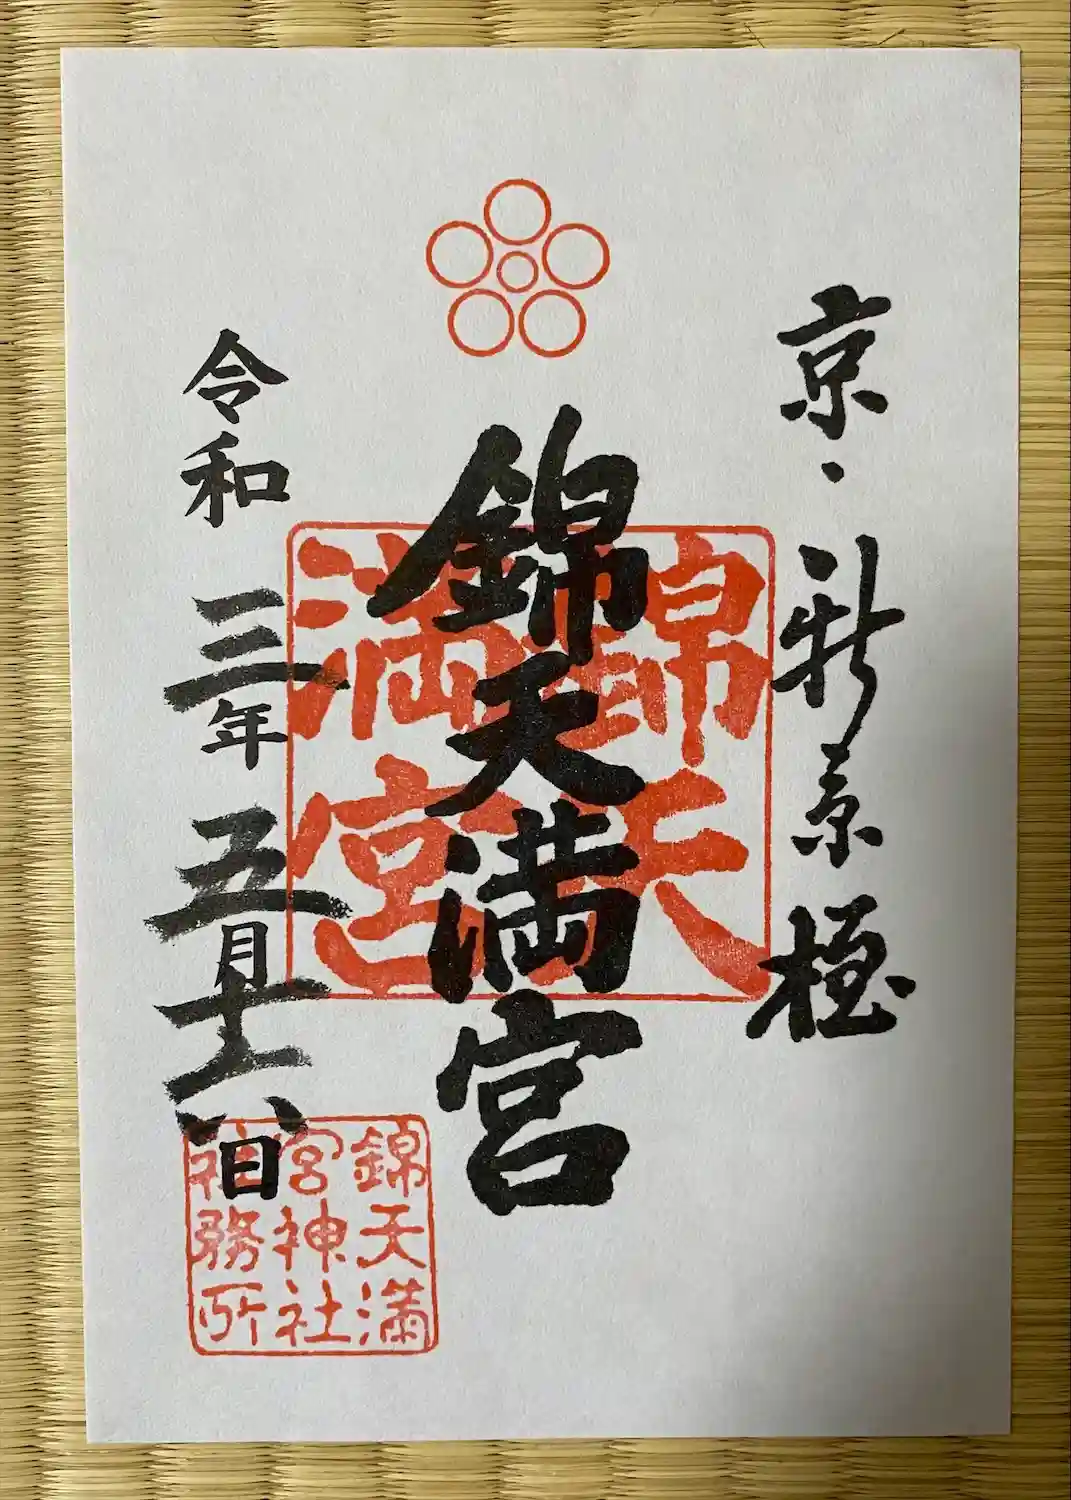 京・新京極
錦天満宮
錦天
満宮
令和三年五月十六日
錦天満
宮神社
社務所